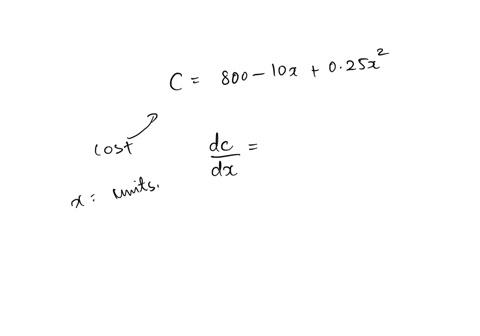 C = 800 - 10x + 0.25x²
cost
dc/dx =
x = units.